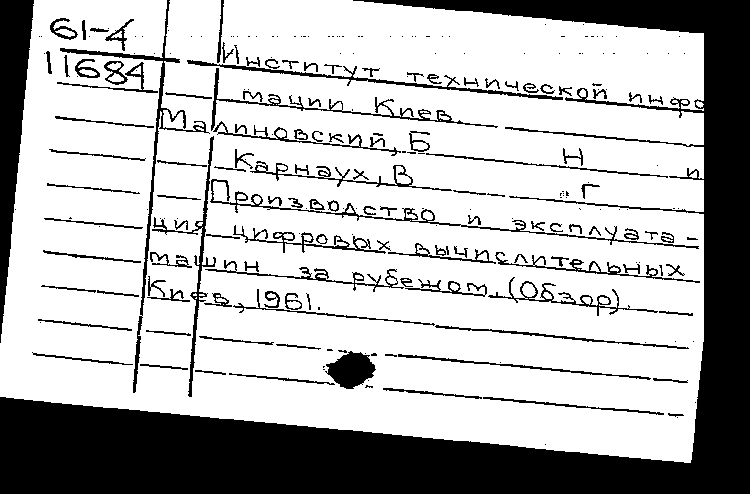 61-4
11684
Институт технической инфо
мации. Киев.
Малиновский, Б Н и
Карнаух, В. Г
Производство и эксплуата-
ция цифровых вычислительных
машин за рубежом. (Обзор).
Киев, 1961.